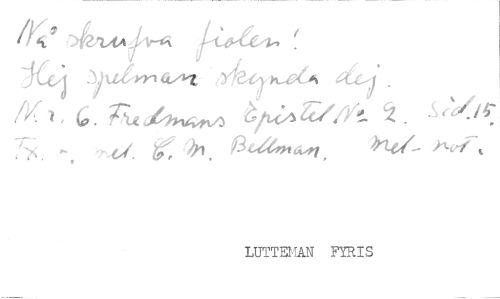 Nå skrufva fiolen!
Hej spelman skynda dej.
N. r. 6. Fredmans Epistel No 2. Sid. 15.
Tx. o. mel. C. M. Bellman. Mel-not.
LUTTEMAN FYRIS